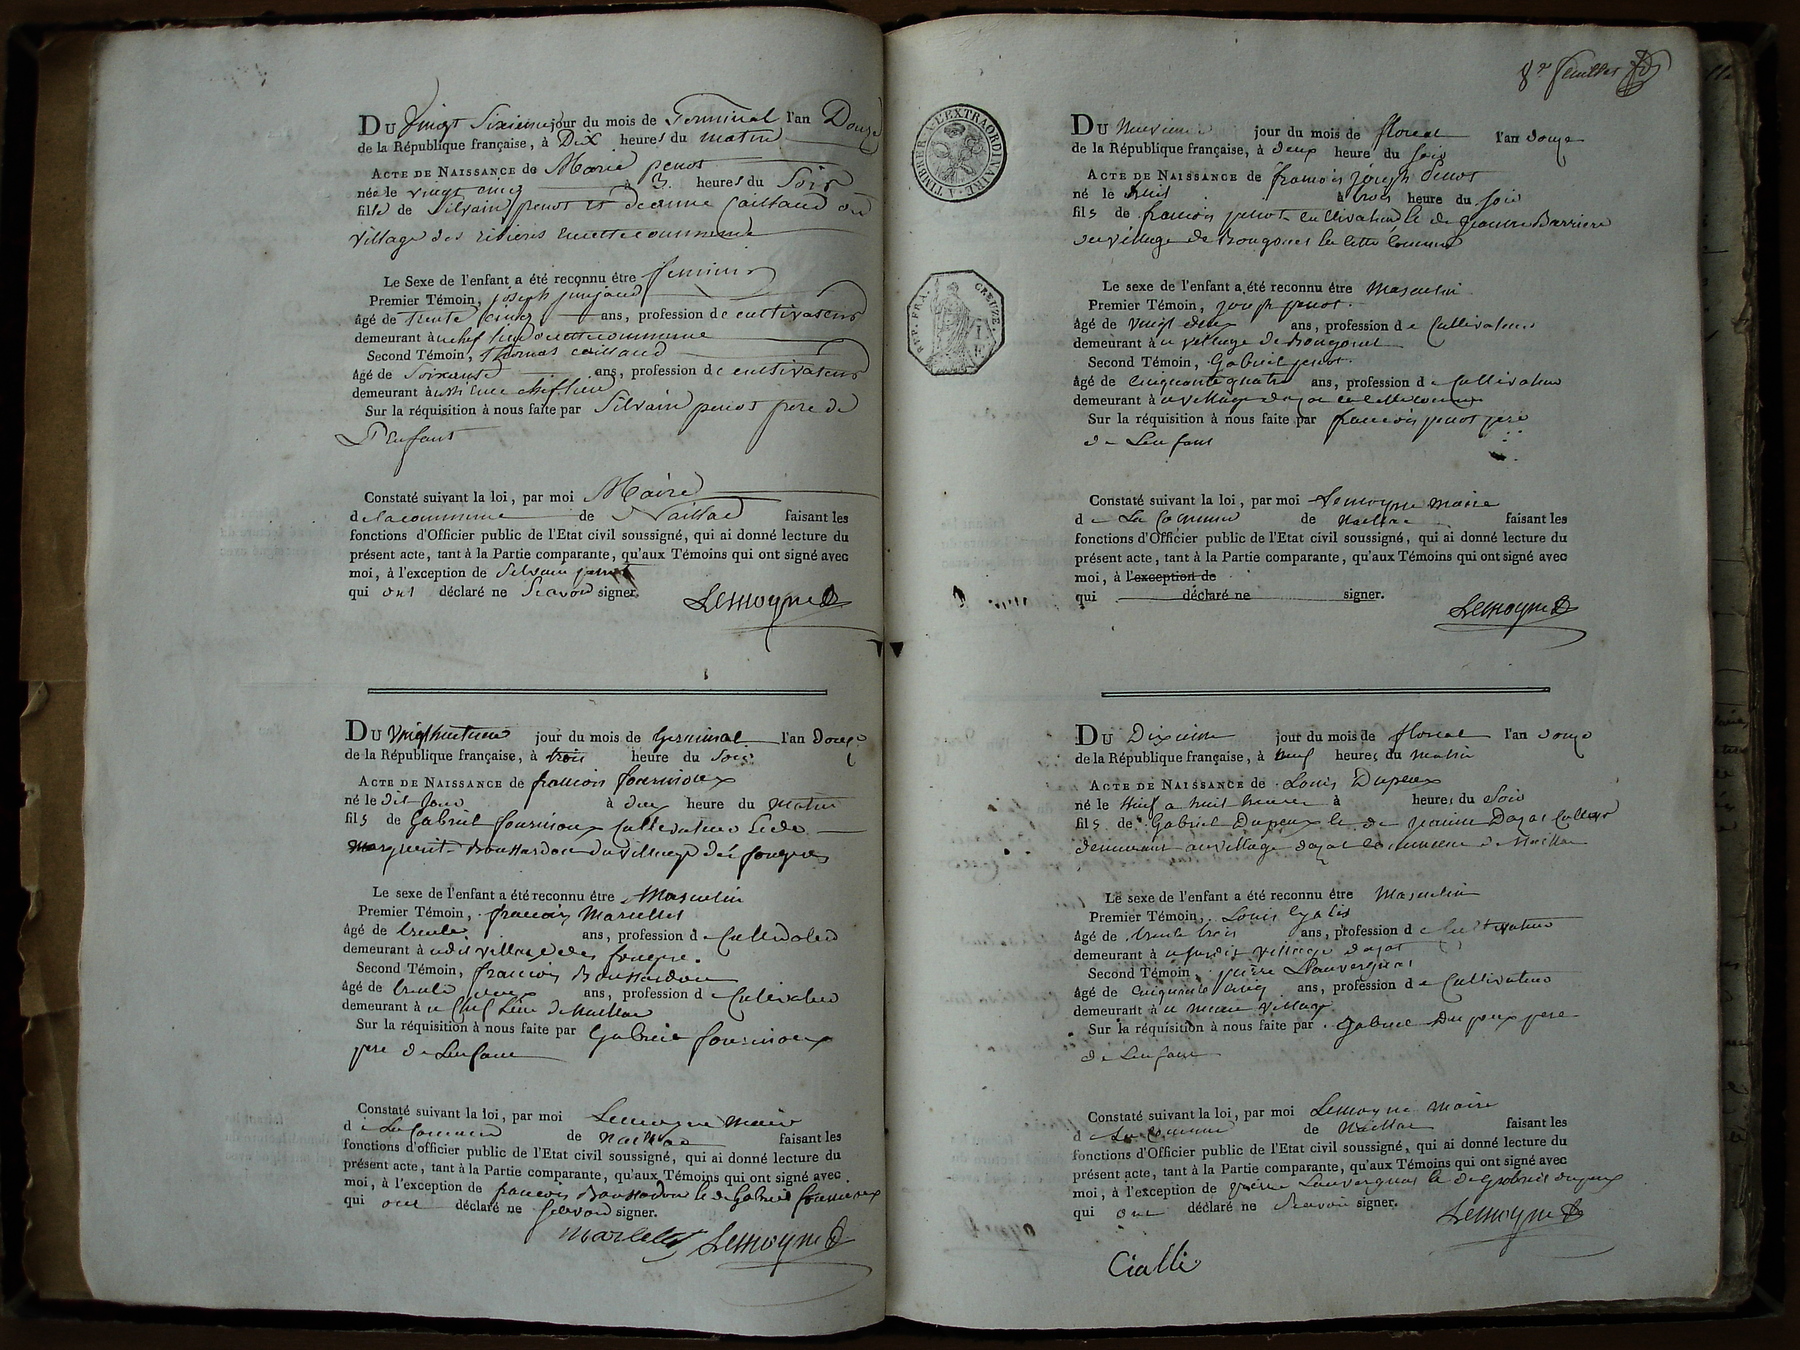 DU Vingt Sixieme jour du mois de Germinal l'an Douze
de la République française, à Dix heures du matin
ACTE DE NAISSANCE de Marie penot
née le vingt cinq à 3 heures du Soir
fille de Silvain penot et de jeanne Caillaud du
village des rivieres en cette commune
Le Sexe de l'enfant a été reconnu être feminin
Premier Témoin, joseph
âgé de trente cinq ans, profession de cultivateur
demeurant au chef lieu de cette commune
Second Témoin, thomas caillaud
âgé de Soixante ans, profession de cultivateur
demeurant aussi au chef lieu
Sur la réquisition à nous faite par Silvain penot pere de
L'enfant
Constaté suivant la loi, par moi Maire
de la commune de Naillat faisant les
fonctions d'Officier public de l'Etat civil soussigné, qui ai donné lecture du
présent acte, tant à la Partie comparante, qu'aux Témoins qui ont signé avec
moi, à l'exception de Silvain penot
qui ont déclaré ne Scavoir signer.
Lemoyne
DU Vingt huitieme jour du mois de Germinal l'an Douze
de la République française, à trois heure du Soir
ACTE DE NAISSANCE de francois fournioux
né le dit jour à deux heure du matin
fils de Gabriel fournioux Cultivateur & de
Marguerite Boussardon du village des fougeres
Le sexe de l'enfant a été reconnu être Masculin
Premier Témoin, francois Marcellot
âgé de trente ans, profession de Cultivateur
demeurant au dit village des fougere.
Second Témoin, francois Boussardon
âgé de trente ans, profession de Cultivateur
demeurant à u Chef Lieu de Naillac
Sur la réquisition à nous faite par Gabriel fournioux
pere de Lenfant
Constaté suivant la loi, par moi Lemoyne maire
de La Commune de Naillac faisant les
fonctions d'officier public de l'Etat civil soussigné, qui ai donné lecture du
présent acte, tant à la Partie comparante, qu'aux Témoins qui ont signé avec
moi, à l'exception de francois Boussardon & de Gabriel fournioux
qui ont déclaré ne Scavoir signer.
Marcellot Lemoyne
8e feuillet
TIMBRER A L'EXTRAORDINAIRE
REP. FRA. CREUZE.
DU Neuvieme jour du mois de floreal l'an douze
de la République française, à deux heure du soir
ACTE DE NAISSANCE de francois joseph Penot
né le huit à trois heure du soir
fils de francois penot cultivateur & de jeanne Barriere
du village de Bougouet en cette Commune
Le sexe de l'enfant a été reconnu être Masculin
Premier Témoin, joseph penot.
âgé de vingt deux ans, profession de Cultivateur
demeurant à u village de Bougouet
Second Témoin, Gabriel penot.
âgé de cinquante quatre ans, profession de Cultivateur
demeurant à u village dazat en cette commune
Sur la réquisition à nous faite par francois penot pere
de Lenfant
Constaté suivant la loi, par moi Lemoyne maire
de La Commune de Naillac faisant les
fonctions d'Officier public de l'Etat civil soussigné, qui ai donné lecture du
présent acte, tant à la Partie comparante, qu'aux Témoins qui ont signé avec
moi, à l'exception de
qui déclaré ne signer.
Lemoyne
DU Dixieme jour du mois de floreal l'an douze
de la République française, à neuf heures du matin
ACTE DE NAISSANCE de Louis Dupeux
né le Neuf a huit heures à heures du Soir
fils de Gabriel Dupeux & de jeanne Dazat Cultivr
demeurant au village dazat commune de Naillac
Le sexe de l'enfant a été reconnu être Masculin
Premier Témoin, Louis
âgé de trente trois ans, profession de Cultivateur
demeurant à u susdit village dazat
Second Témoin, pierre Lauvergnat
âgé de Cinquante Cinq ans, profession de Cultivateur
demeurant à u meme village
Sur la réquisition à nous faite par Gabriel Dupeux pere
de Lenfant
Constaté suivant la loi, par moi Lemoyne maire
de La Commune de Naillac faisant les
fonctions d'Officier public de l'Etat civil soussigné, qui ai donné lecture du
présent acte, tant à la Partie comparante, qu'aux Témoins qui ont signé avec
moi, à l'exception de pierre Lauvergnat & de gabriel dupeux
qui ont déclaré ne Scavoir signer.
Lemoyne
Cialli